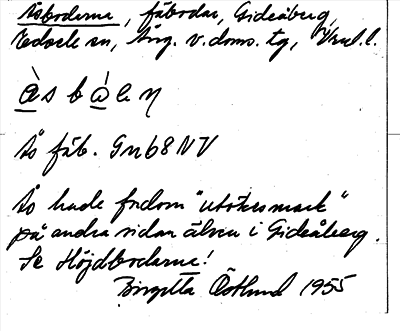 Åsbodarna, fäbodar, Gideåberg,
Ång. v. doms. tg,
å s b ò l e η
Ås fäb. Gnb8NV
Ås hade fordom "utökesmark"
på andra sidan älven i Gideåberg.
Se Höjdbodarna!
Birgitta Östlund 1955